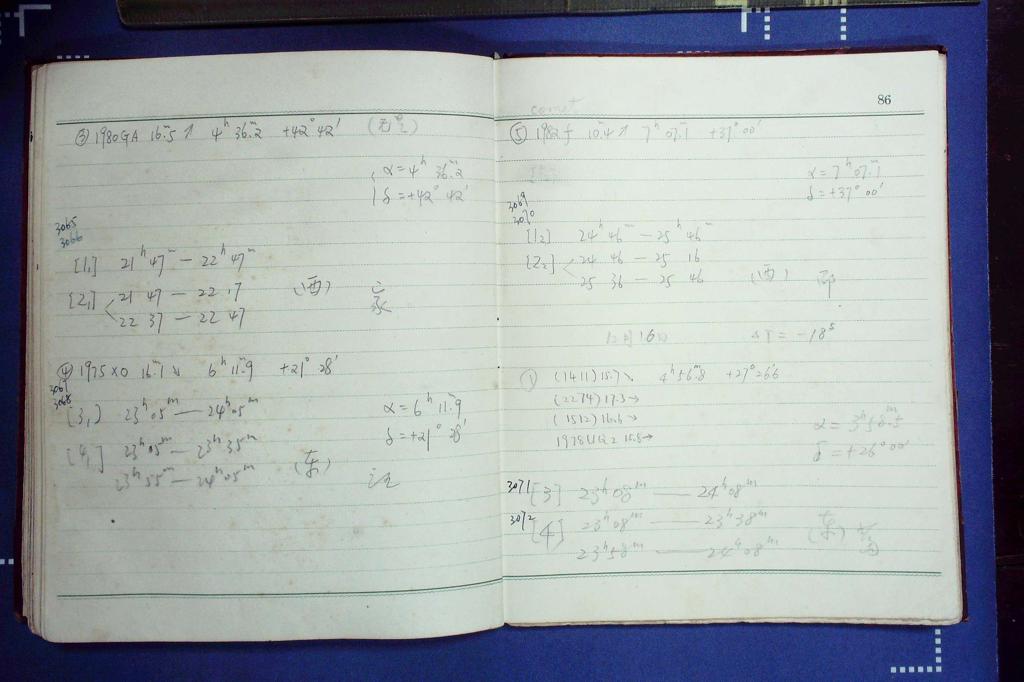 ③ 1980GA 16.ᵐ5 ↗ 4ʰ 36.ᵐ2 +42° 42′
α = 4ʰ 36.ᵐ2
δ = +42° 42′
3065
3066
[1,] 21ʰ 47ᵐ — 22ʰ 47ᵐ
[2,] 21 47 — 22 17 (西)
22 37 — 22 47
④ 1975 XO 16.ᵐ1 ↘ 6ʰ 11.ᵐ9 +21° 28′
3067
3068
[3,] 23ʰ 05ᵐ — 24ʰ 05ᵐ
α = 6ʰ 11.ᵐ9
δ = +21° 28′
[4,] 23ʰ 05ᵐ — 23ʰ 35ᵐ (东)
23ʰ 55ᵐ — 24ʰ 05ᵐ
86
comet
⑤ 1982f 10.4 ↗ 7ʰ 07.ᵐ1 +37° 00′
α = 7ʰ 07.ᵐ1
δ = +37° 00′
3069
3070
[1₂] 24ʰ 46ᵐ — 25ʰ 46ᵐ
[2₂] 24 46 — 25 16 (西)
25 36 — 25 46
12月16日 ΔT = −18ˢ
① (1411) 15.7 ↘ 4ʰ 56.ᵐ8 +27° 26.6
(2274) 17.3 →
(1512) 16.6 →
1978UQ2 15.8 →
α = 3ʰ 58.ᵐ5
δ = +26° 00′
3071 [3] 23ʰ 08ᵐ — 24ʰ 08ᵐ
3072 [4] 23ʰ 08ᵐ — 23ʰ 38ᵐ (东)
23ʰ 58ᵐ — 24ʰ 08ᵐ